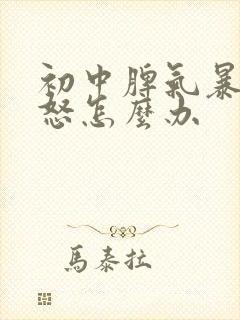 初中脾氣暴
怒怎麼办
馬泰拉